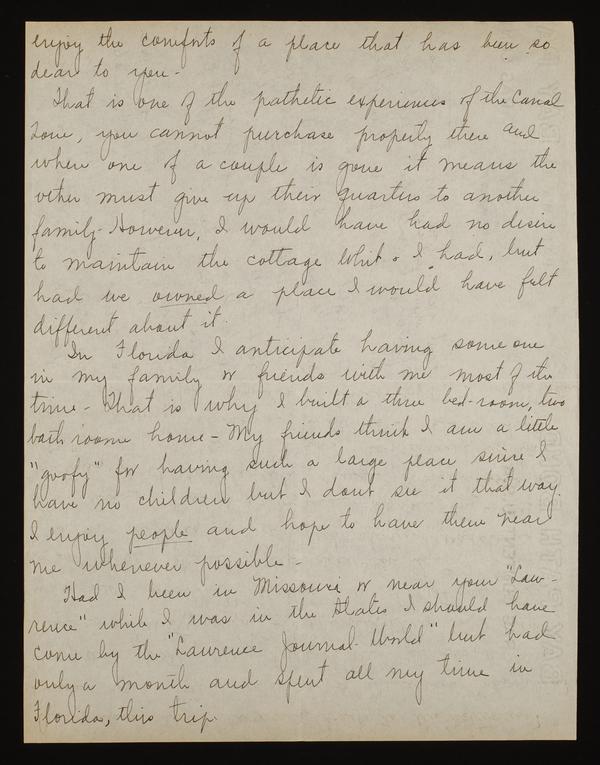 enjoy the comforts of a place that has been so
dear to you -
That is one of the pathetic experiences of the Canal
Zone, you cannot purchase property there and
when one of a couple is gone it means the
other must give up their quarters to another
family - However, I would have had no desire
to maintain the cottage Whit & I had, but
had we owned a place I would have felt
different about it.
In Florida I anticipate having some one
in my family or friends with me most of the
time - That is why I built a three bed-room, two
bath room home - My friends think I am a little
"goofy" for having such a large place since I
have no children but I dont see it that way.
I enjoy people and hope to have them near
me whenever possible -
Had I been in Missouri or near your "Law-
rence" while I was in the States I should have
come by the "Lawrence Journal-World" but had
only a month and spent all my time in
Florida, this trip.